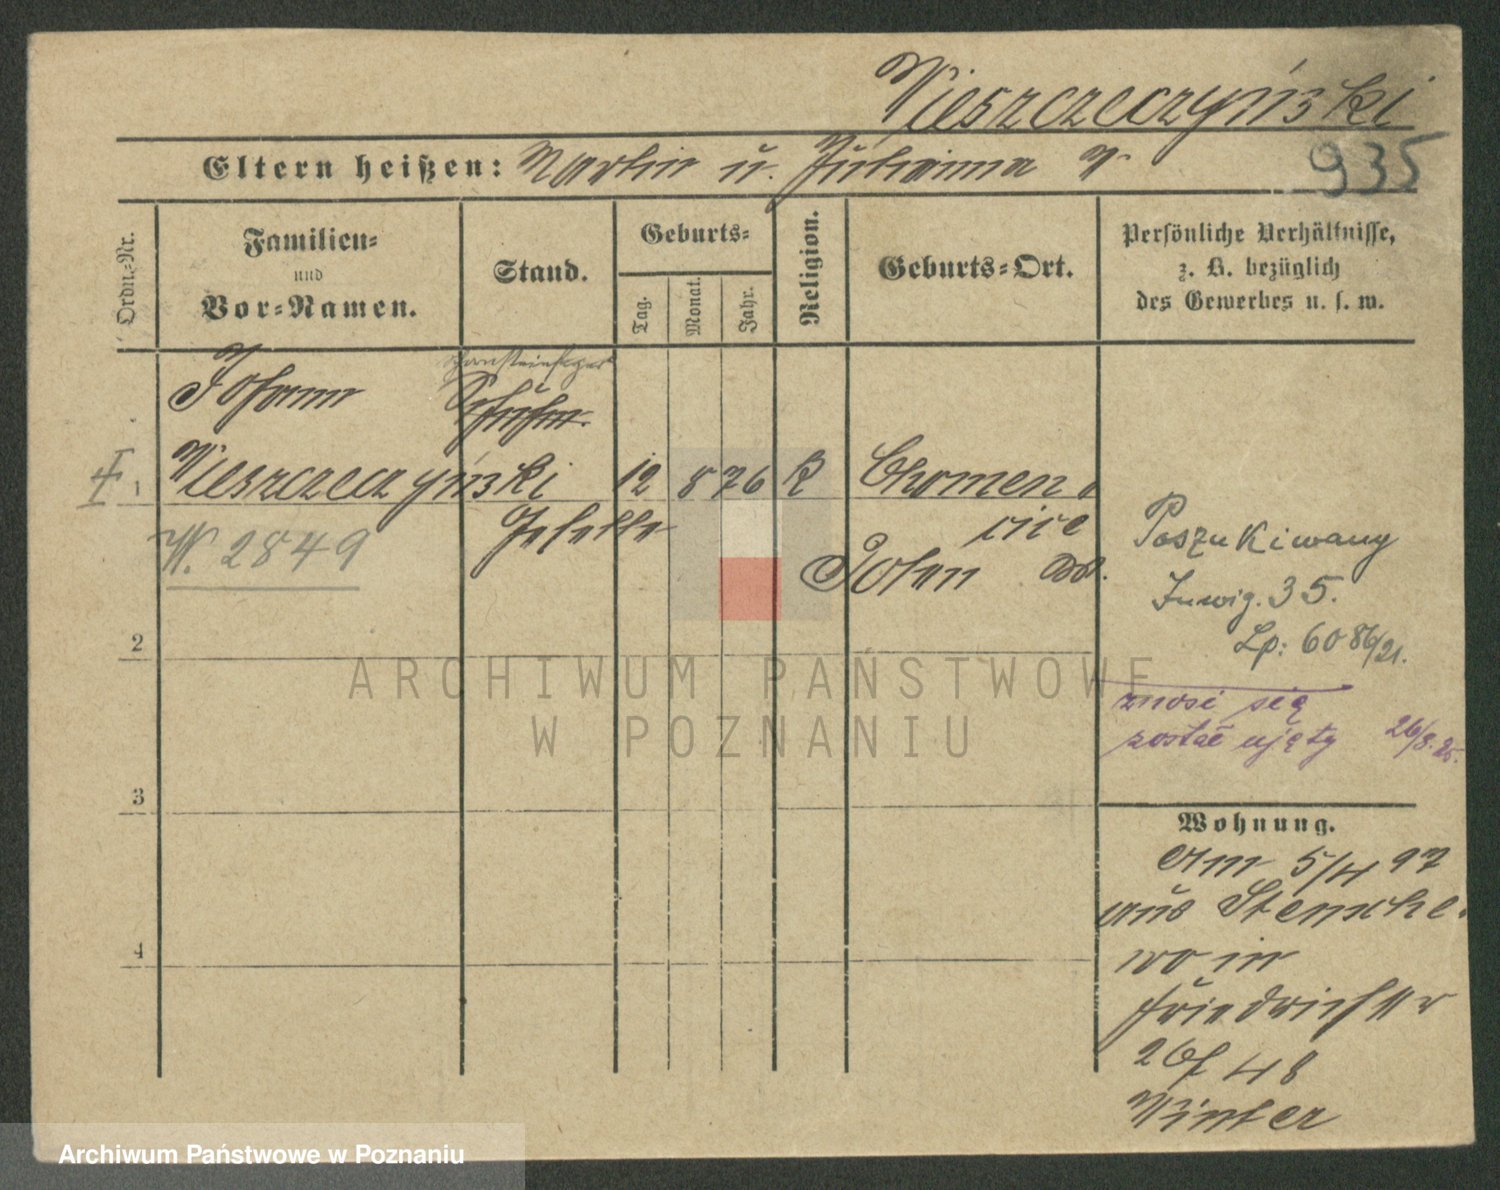 Wieszczeczyński
Eltern heißen: Martin u. Julianna
935
Ordn.-Nr.
Familien-
und
Vor-Namen.
Stand.
Geburts-
Tag.
Monat.
Jahr.
Religion.
Geburts-Ort.
Persönliche Verhältnisse,
z. B. bezüglich
des Gewerbes u. s. w.
Johann
1 Wieszczeczyński 12 8 76 K Chomen
cice
W. 2849
Geselle
Polen
Poszukiwany
Inwig. 35.
Lp: 6086/21.
znosi się
został ujęty 26/8. 25.
2
3
4
Wohnung.
Am 5/4 97
aus Stensche
wo in
Friedrichstr
26 48
Winter
ARCHIWUM PAŃSTWOWE
W POZNANIU
Archiwum Państwowe w Poznaniu